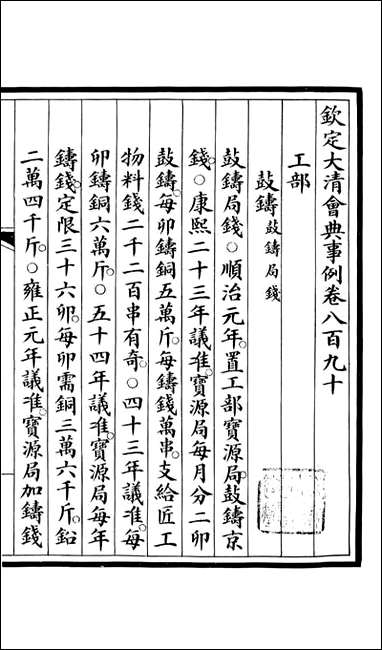 欽定大清會典事例卷八百九十
工部
鼓鑄鼓鑄局錢
鼓鑄局錢○順治元年置工部寶源局鼓鑄京
錢○康熙二十三年議准寶源局每月分二卯
鼓鑄每卯鑄銅五萬斤每鑄錢萬串支給匠工
物料錢二千二百串有奇○四十三年議准每
卯鑄銅六萬斤○五十四年議准寶源局每年
鑄錢定限三十六卯每卯需銅三萬六千斤鉛
二萬四千斤○雍正元年議准寶源局加鑄錢